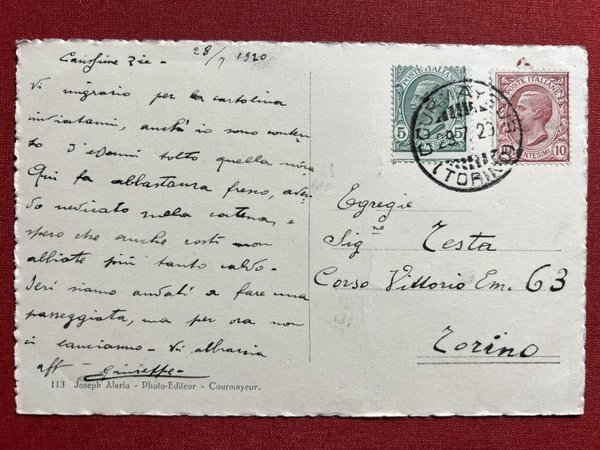 28/7 1920
Carissime Zie -
Vi ringrazio per la cartolina
inviatami, anch'io sono conten
to d'essermi tolto quella
Qui fa abbastanza fresco, aven
do nevicato nella catena, e
spero che anche costì non
abbiate più tanto caldo -
Ieri siamo andati a fare una
passeggiata, ma per ora non
ci lanciamo - Vi abbraccia
aff - Giuseppe -
113 Joseph Alaria - Photo-Editeur - Courmayeur.
POSTE ITALIANE
5 5
POSTE ITALIANE
10 CENTESIMI 10
COURMAYEUR
29.7.20
(TORINO)
Egregie
Sigᵐᵉ Testa
Corso Vittorio Em. 63
Torino